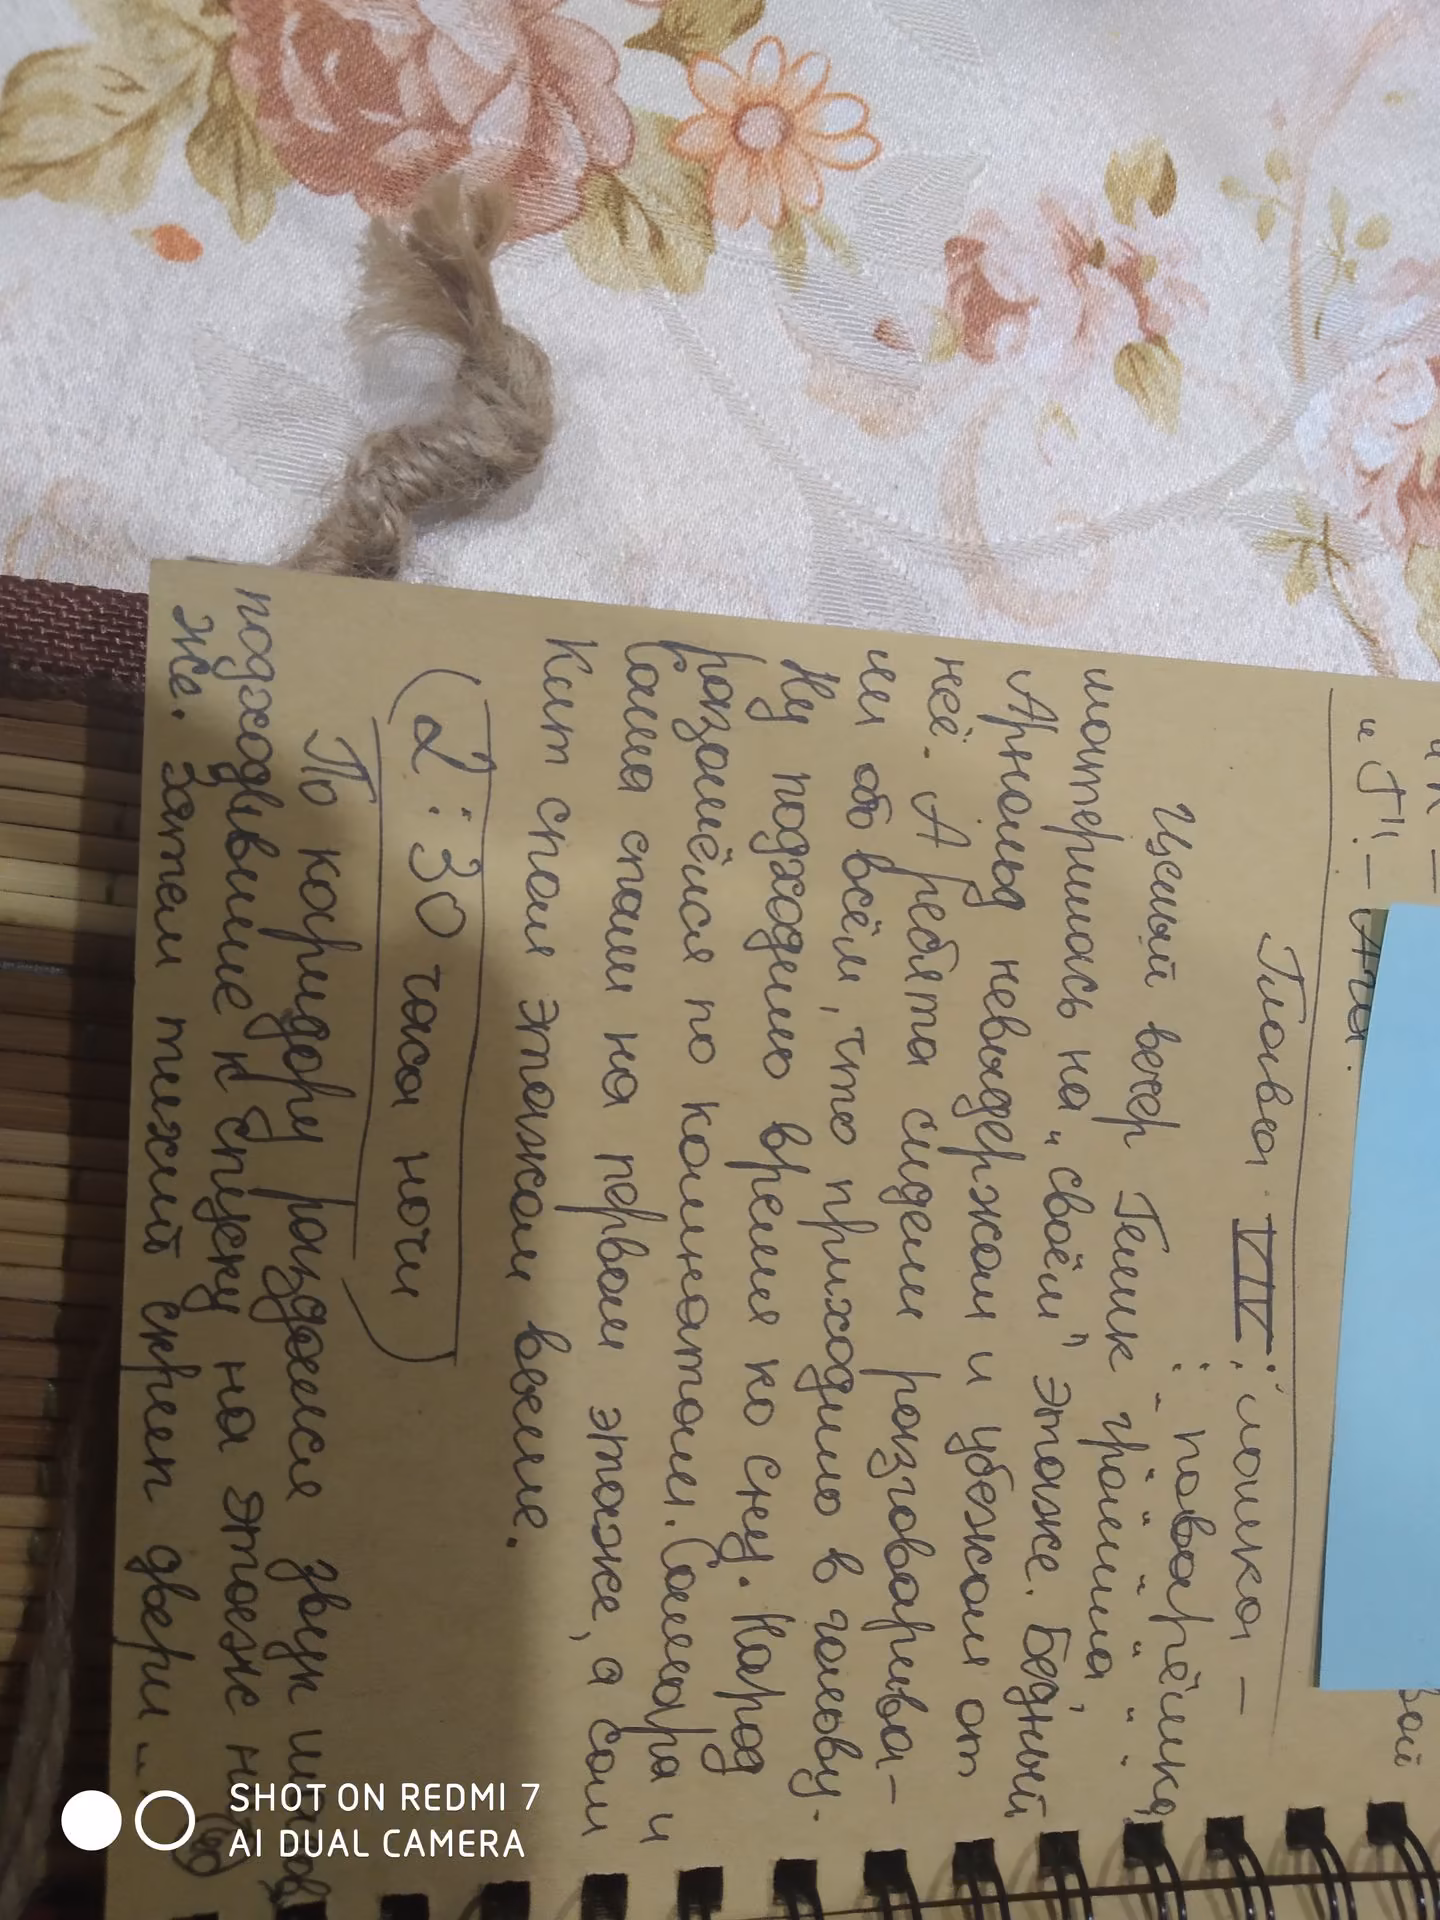 "Г" –
Глава VIV: мошка –
– поварёшка
Целый вечер Гешк громила,
материлась на "своём" этаже. Бедный
Арнольд невыдержал и убежал от
неё. А ребята сидели разговарива–
ли обо всём, что приходило в голову.
Ну подходило время ко сну. Народ
разошёлся по комнатам. Саммара и
Саша спали на первом этаже, а сам
Кит спал этажом выше.
(2:30 часа ночи)
По каридору раздался звук шагов
подходившие к спуску на этаж ни
же. Затем тихий скрип двери ...
SHOT ON REDMI 7
AI DUAL CAMERA